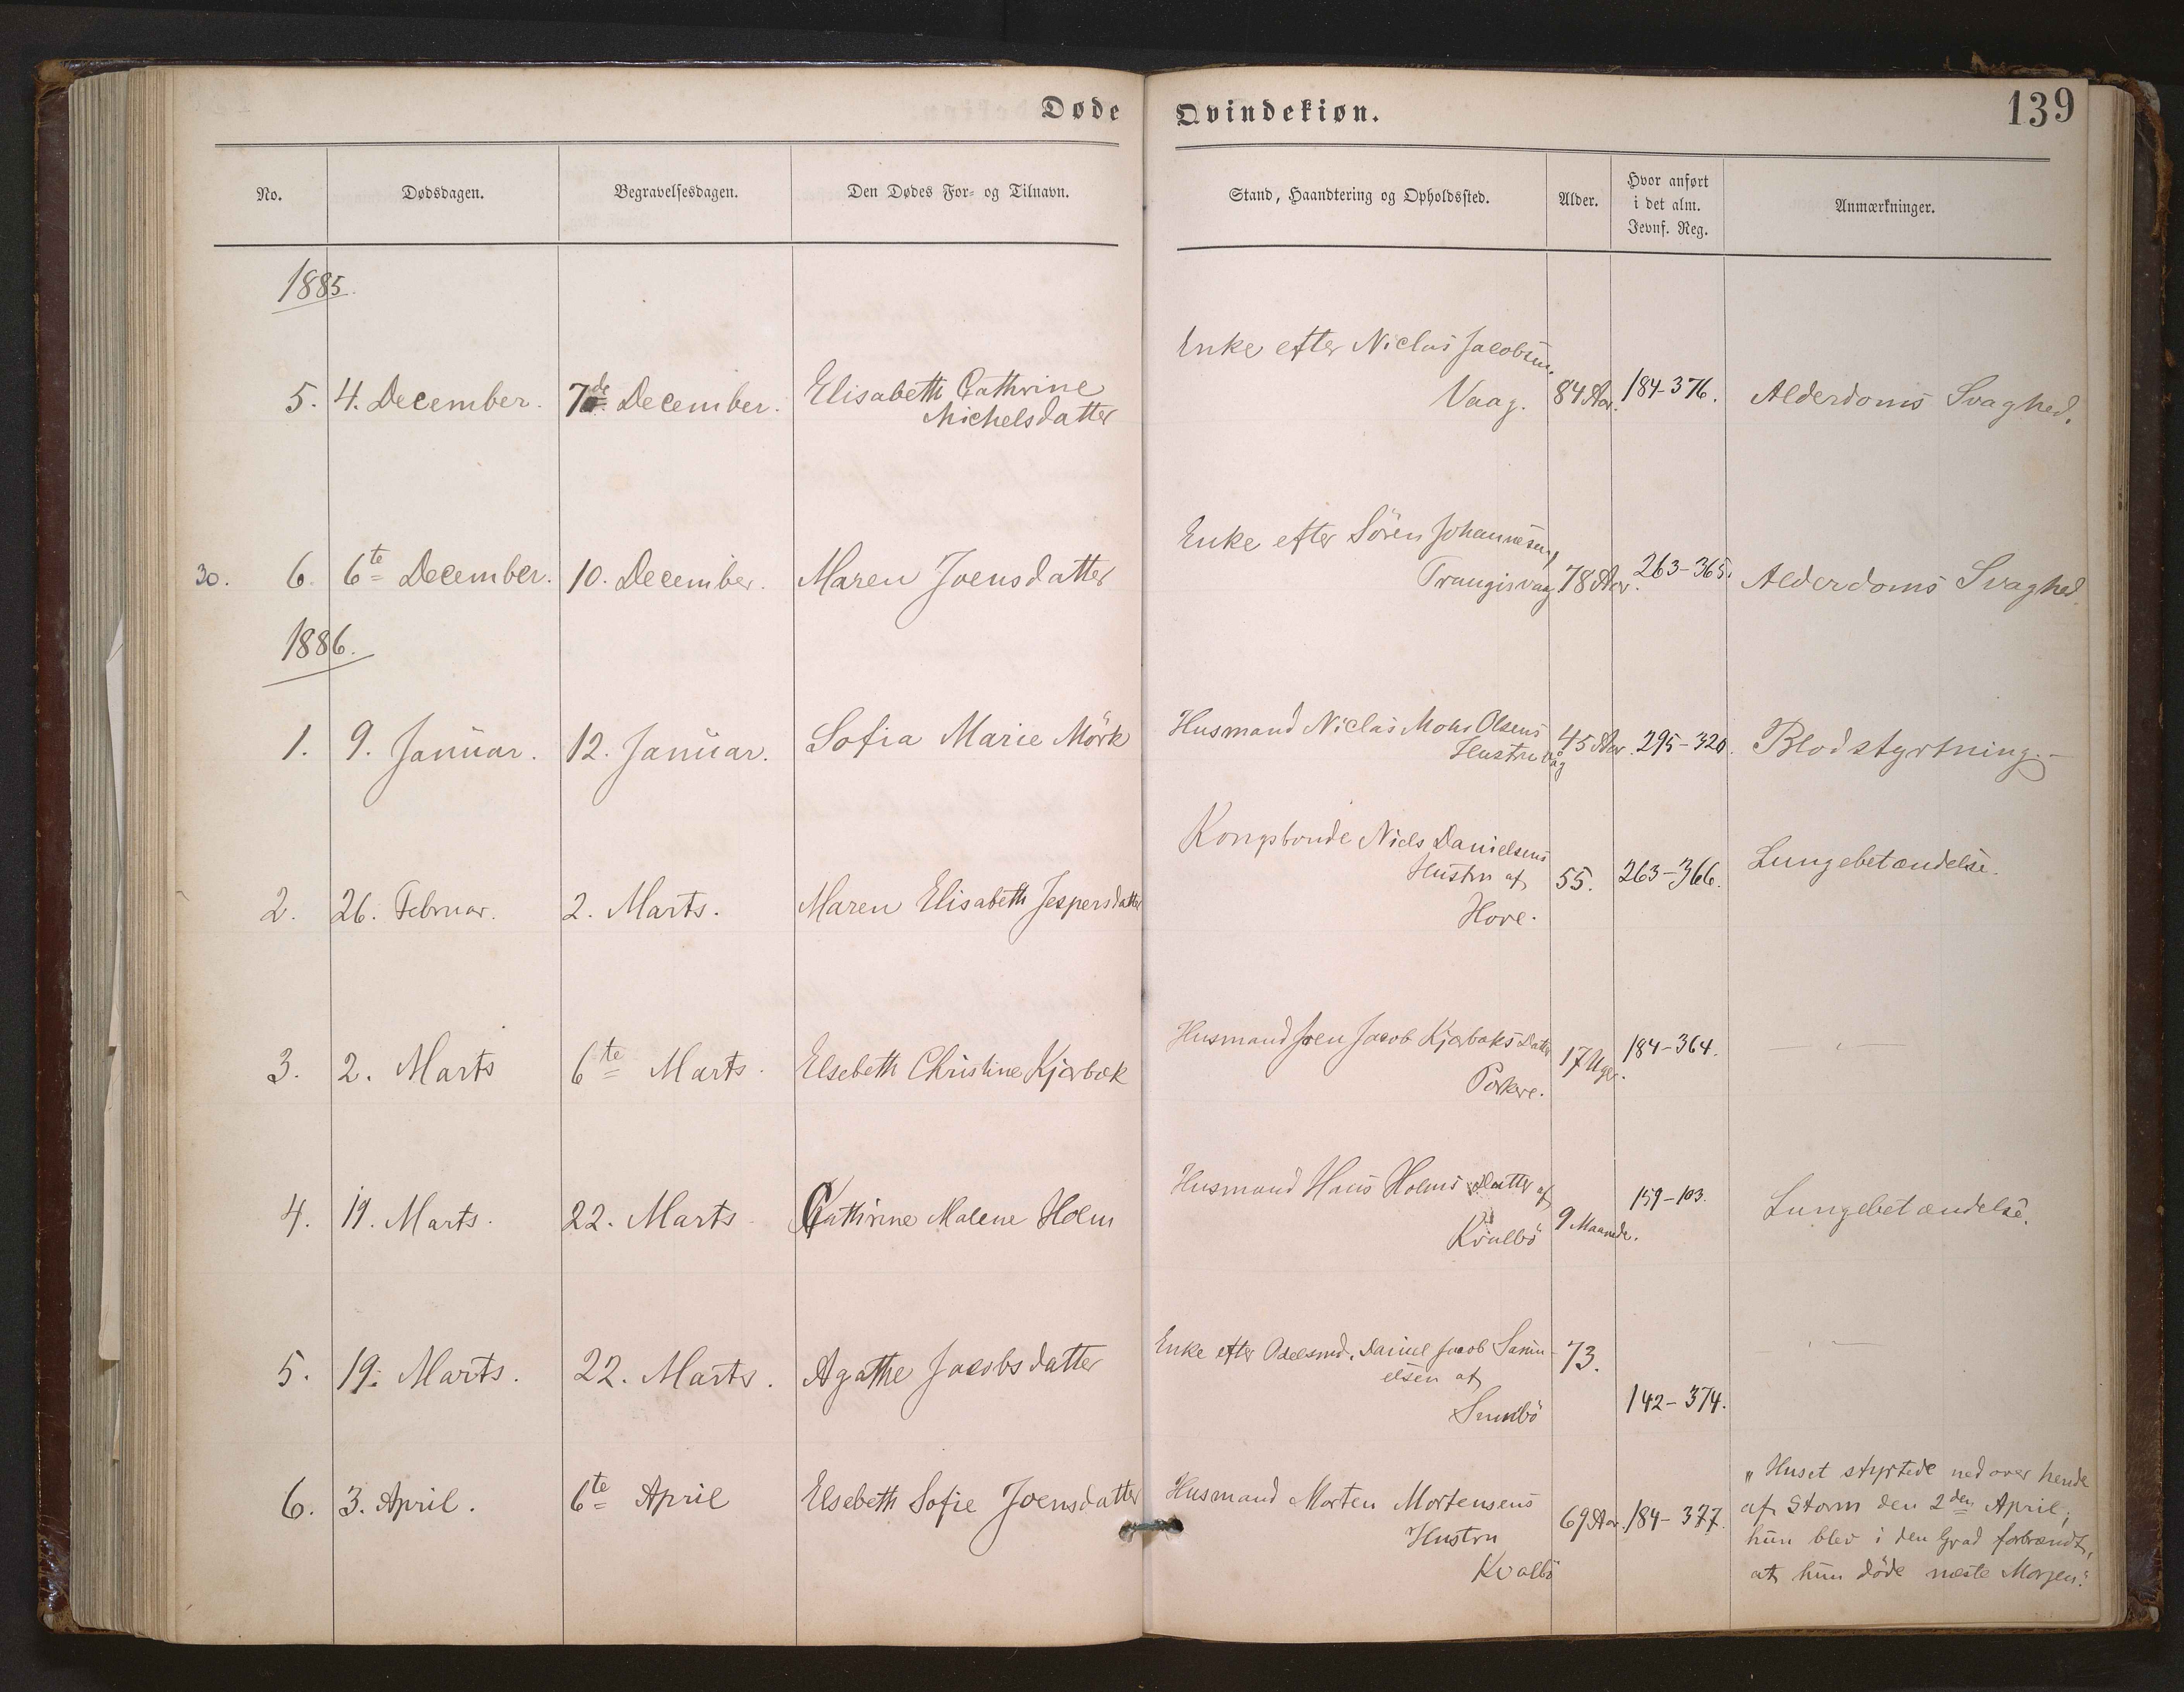 Døde Qvindekiøn. 139
No. Dødsdagen. Begravelsesdagen. Den Dødes For- og Tilnavn. Stand, Haandtering og Opholdssted. Alder. Hvor anført i det alm. Jevnf. Reg. Anmærkninger.
1885.
Enke efter Niclas Jacobsen.
5. 4. December. 7de December. Elisabeth Cathrine Vaag. 84 Aar. 184-376. Alderdoms Svaghed.
Michelsdatter
Enke efter Sören Johannesen,
30. 6. 6te December. 10. December. Maren Joensdatter Trangisvaag 78 Aar. 263-365. Alderdoms Svaghed
1886.
Husmand Niclas Mohr Olsens
1. 9. Januar. 12. Januar. Sofia Marie Mörk Hustru Våg 45 Aar. 295-320. Blodstyrtning.-
Kongsbonde Niels Danielsens
Hustru af 55. 263-366. Lungebetændelse.
2. 26. Februar. 2. Marts. Maren Elisabeth Jespersdatter Hove.
Husmand Joen Jacob Kjærbæks Datter
3. 2. Marts 6te Marts. Elsebeth Christine Kjærbæk Porkere. 17 Uger. 184-364. — " —
Husmand Hans Holms Datter af
4. 19. Marts. 22. Marts Cathrine Malene Holm Kvalbö 9 Maaneder. 159-103. Lungebetændelse.
Enke efter Odelsmd. Daniel Jacob Samu-
5. 19. Marts. 22. Marts. Agathe Jacobsdatter elsen af 73. — " —
Sumbö 142-374.
6. 3. April. 6te April Elsebeth Sofie Joensdatter Husmand Morten Mortensens
Hustru 69 Aar. 184-377.
Kvalbö
"Huset styrtede ned over hende
af Storm den 2den April;
hun blev i den Grad forbrændt,
at hun döde næste Morgen."